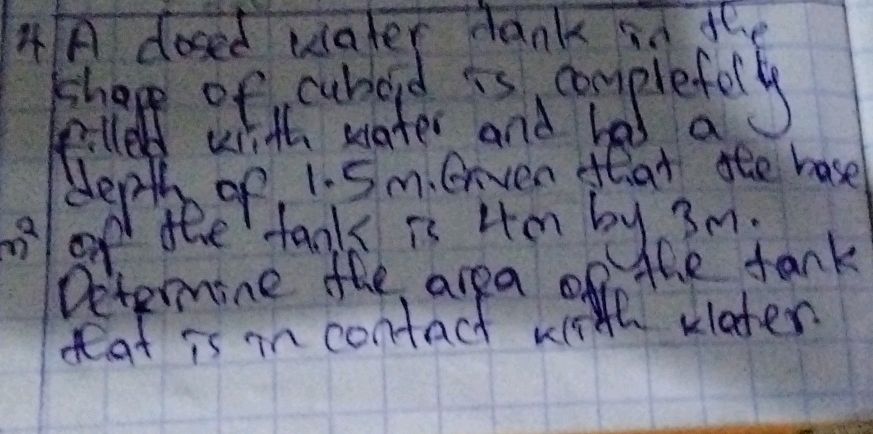 4 A closed water tank in the
shape of cuboid is completely
filled with water and has a
depth of 1.5m. Given that the base
m² of the tank is 4m by 3m.
Determine the area of the tank
that is in contact with water.